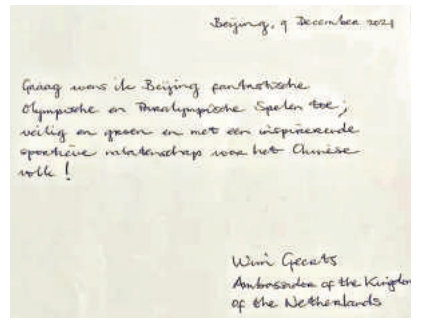 Beijing, 9 December 2021
Graag wens ik Beijing fantastische
Olympische en Paralympische Spelen toe;
veilig en groen en met een inspirerende
sportieve nalatenschap voor het Chinese
volk!
Wim Geerts
Ambassador of the Kingdom
of the Netherlands